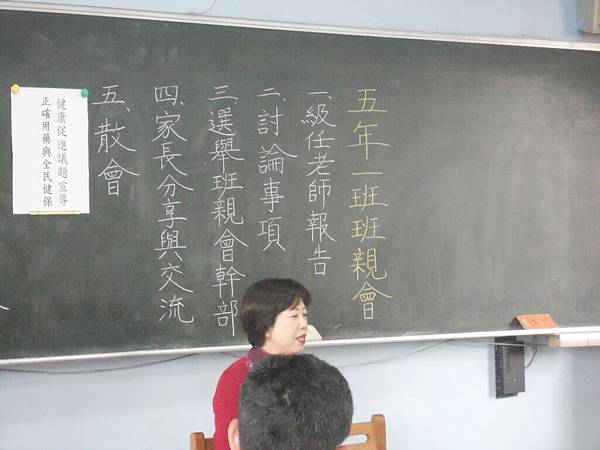 五年一班班親會
一、級任老師報告
二、討論事項
三、選舉班親會幹部
四、家長分享與交流
五、散會
健康促進議題宣導
正確用藥與全民健保